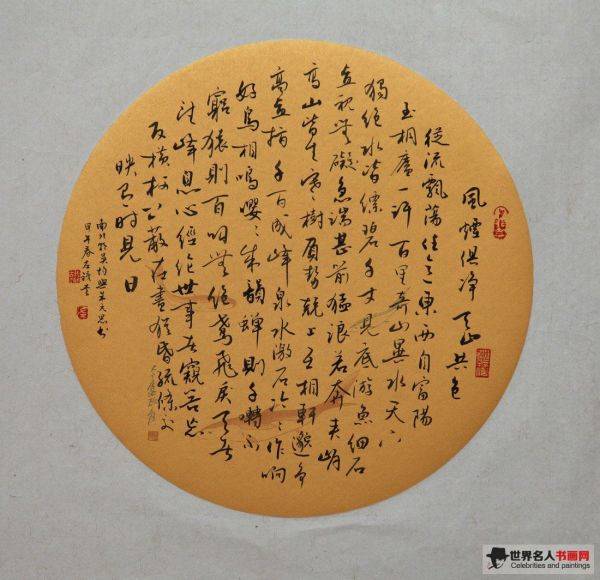 風煙俱净天山共色
從流飄蕩任意東西自富陽
至桐廬一許百里奇山異水天下
獨絕水皆縹碧千丈見底游魚細石
直視無礙急湍甚箭猛浪若奔夹岸
高山皆生寒樹負勢競上互相軒邈争
高直指千百成峰泉水激石泠泠作响
好鳥相鳴嚶嚶成韻蟬則千囀不
窮猿則百叫無絕鳶飛戾天者
望峰息心經綸世事者窺谷忘
反横柯上蔽在晝猶昏疏條交
映有時見日
南北朝吴均與朱元思书
甲午春
世界名人书画网
Celebrities and paintings